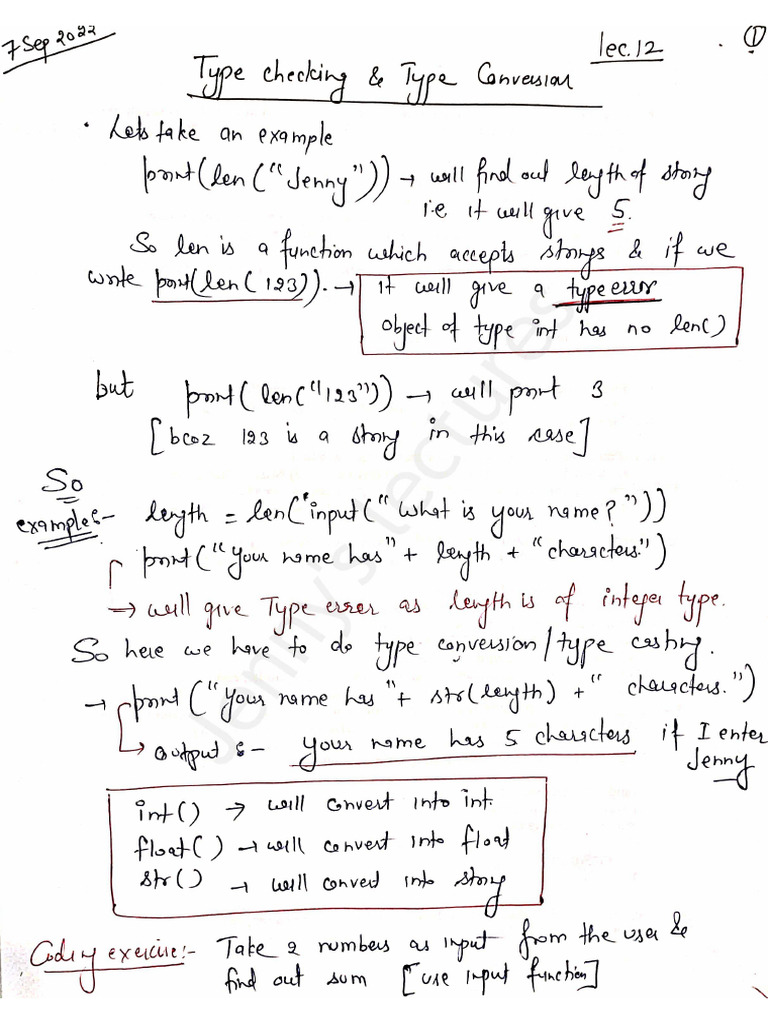 7 Sep 2022
lec.12
①
Type checking & Type Conversion
• Lets take an example
print(len("Jenny")) → will find out length of string
i.e it will give 5.
So len is a function which accepts strings & if we
write print(len(123)). → it will give a type error
object of type int has no len()
but print(len("123")) → will print 3
[bcoz 123 is a string in this case]
So
examples:- length = len(input("What is your name?"))
print("Your name has" + length + "characters.")
→ will give Type error as length is of integer type.
So here we have to do type conversion/type casting.
→ print("Your name has "+ str(length) + " characters.")
→ output :- your name has 5 characters if I enter
Jenny
int() → will convert into int.
float() → will convert into float
str() → will convert into string
Coding exercise:- Take 2 numbers as input from the user &
find out sum [use input function]
Jenny's lectures